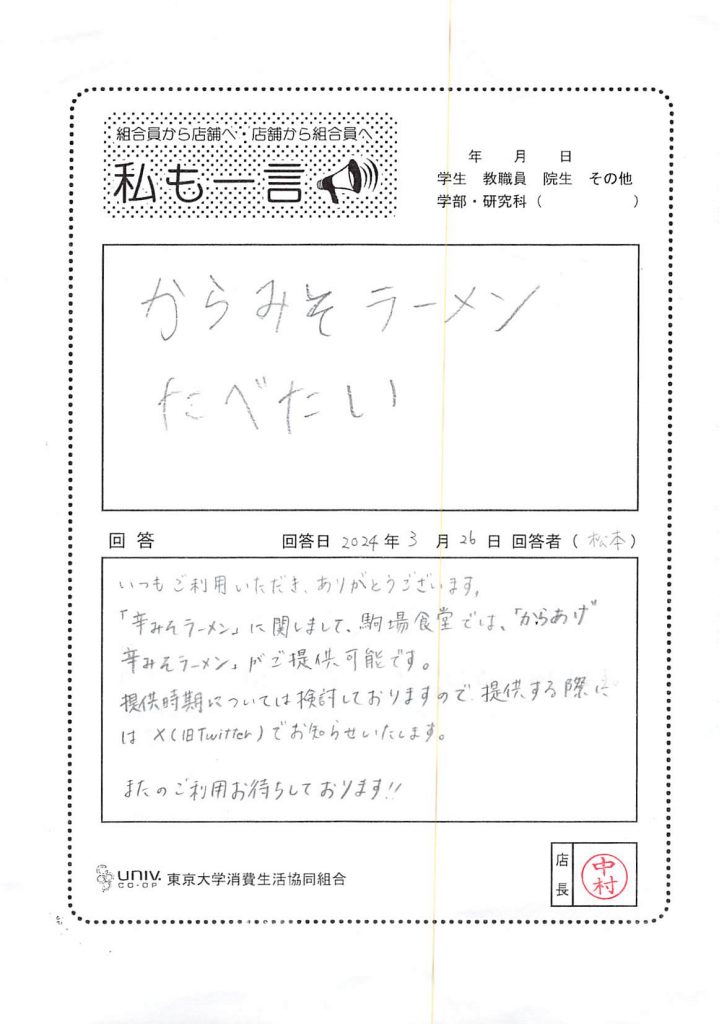 組合員から店舗へ・店舗から組合員へ
私も一言
年 月 日
学生 教職員 院生 その他
学部・研究科( )
からみそラーメン
たべたい
回答 回答日 2024年3月26日 回答者(松本)
いつもご利用いただき、ありがとうございます。
「辛みそラーメン」に関しまして、駒場食堂では、「からあげ
辛みそラーメン」がご提供可能です。
提供時期については検討しておりますので、提供する際に
は X(旧Twitter)でお知らせいたします。
またのご利用お待ちしております!!
UNIV. CO-OP 東京大学消費生活協同組合
店長 中村